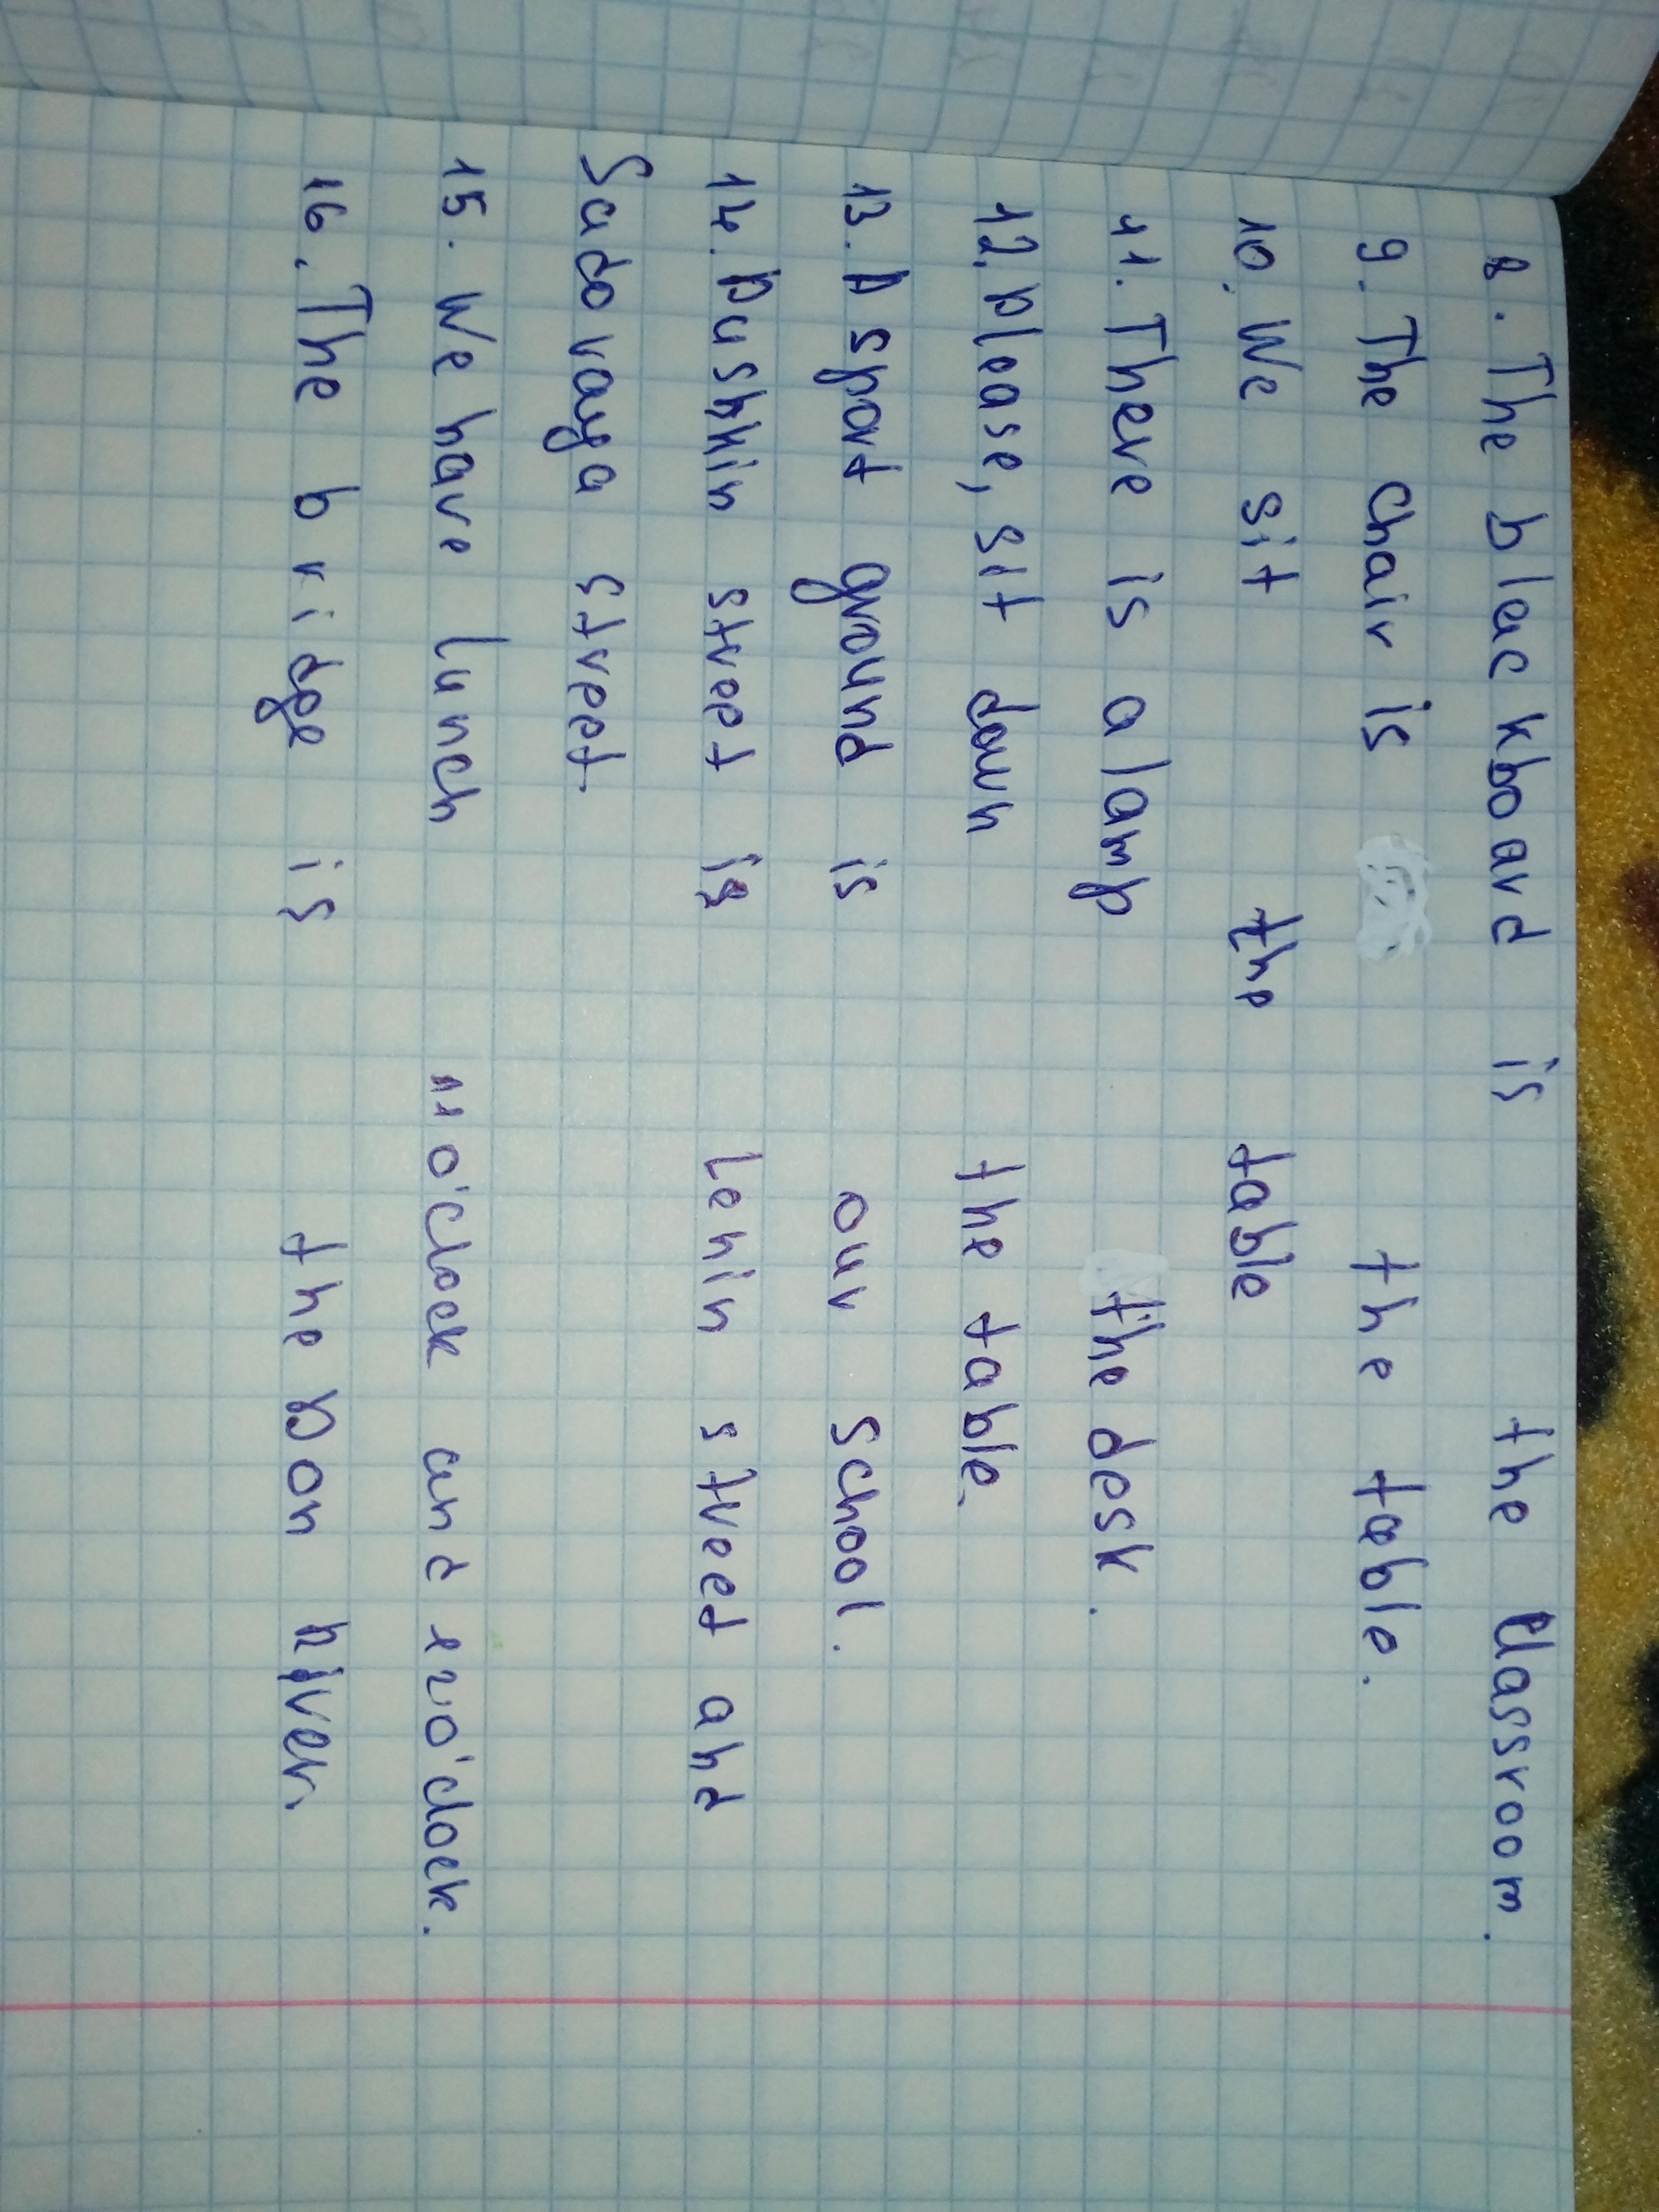 8. The blackboard is the classroom.
9. The chair is the table.
10. We sit the table
11. There is a lamp the desk.
12. Please, sit down the table.
13. A sport ground is our school.
14. Pushkin street is Lenin street and
Sadovaya street.
15. We have lunch 11 o'clock and 12 o'clock.
16. The bridge is the Don river.